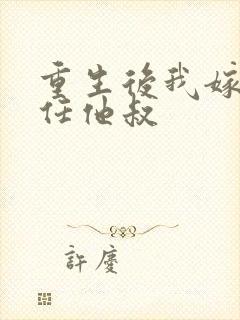 重生後我嫁
任他叔
許慶